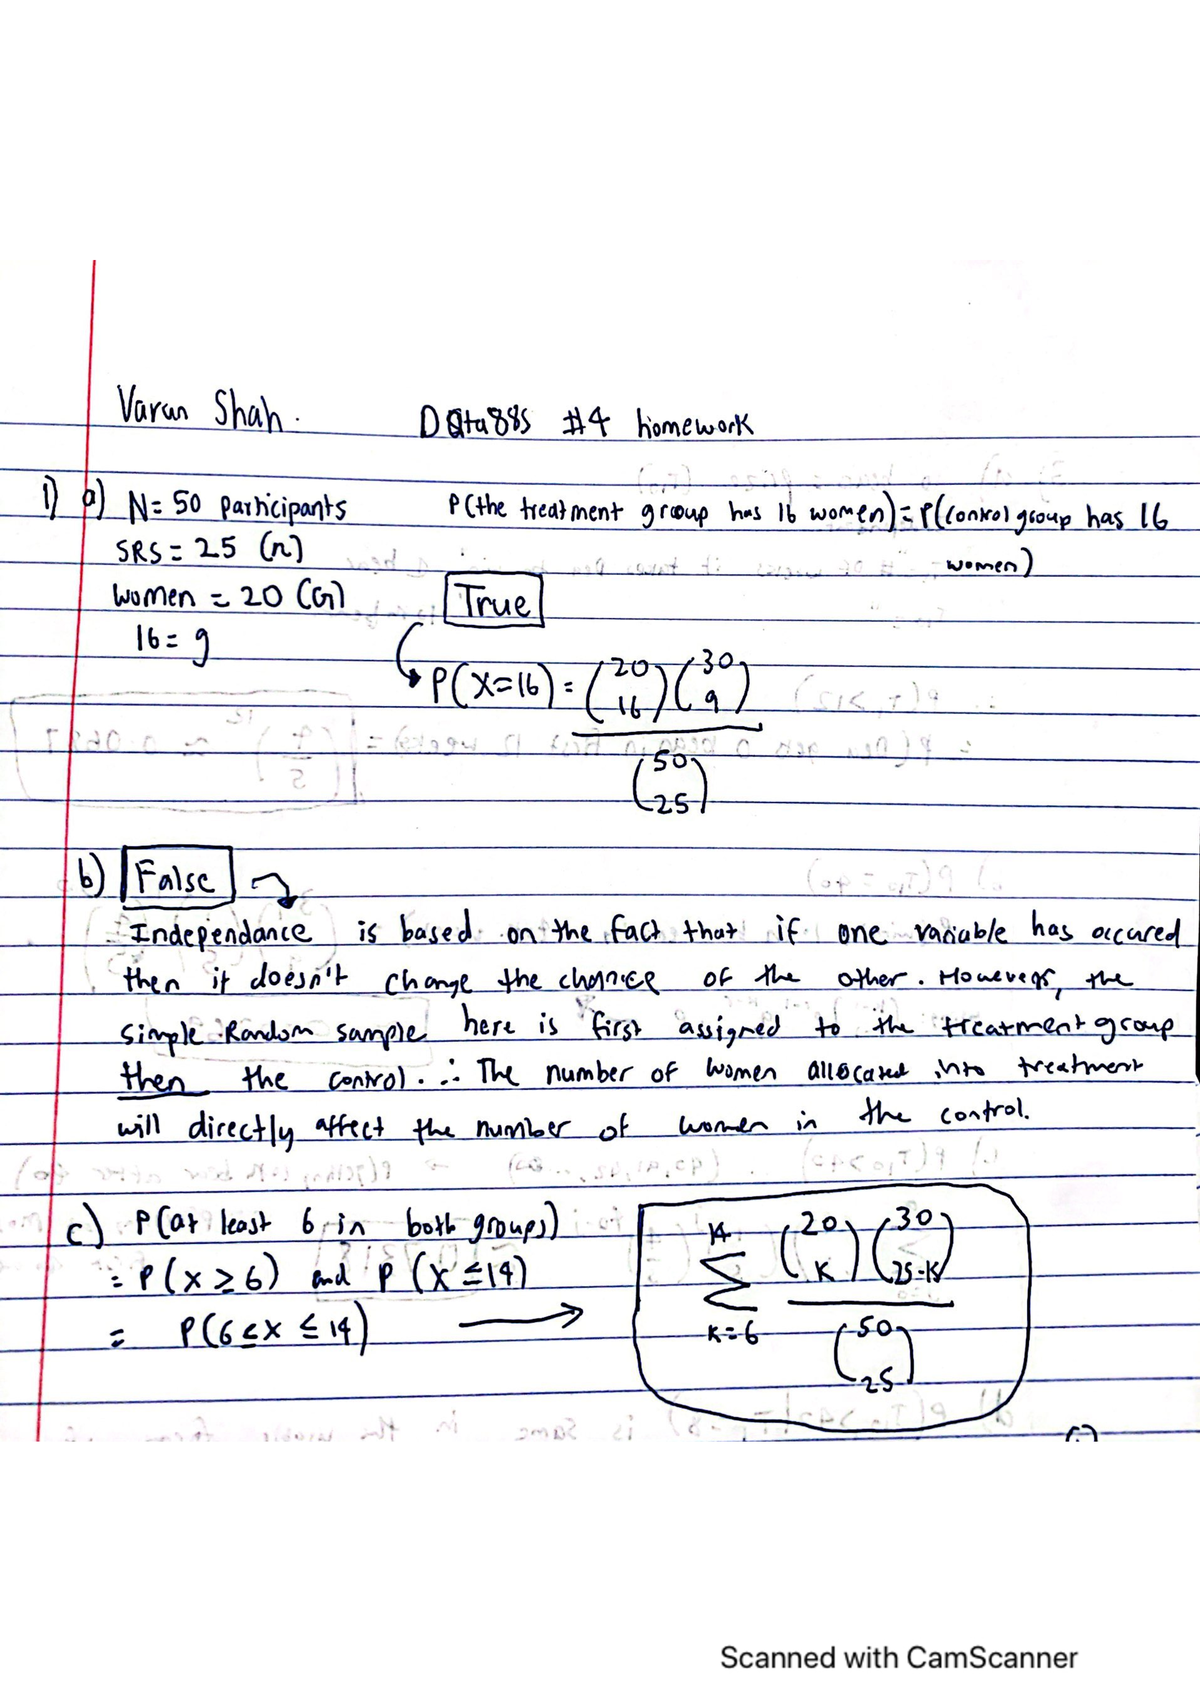 Varun Shah. Data88S #4 homework
1) a) N= 50 participants P(the treatment group has 16 women) = P(control group has 16 women)
SRS = 25 (n)
women = 20 (G) True
16 = g
P(X=16) = (20 16) (30 9)
(50 25)
b) False
Independance is based on the fact that if one variable has occured
then it doesn't change the chance of the other. However, the
simple Random sample here is first assigned to the treatment group
then the control. ∴ The number of women allocated into treatment
will directly affect the number of women in the control.
c) P(at least 6 in both groups)
= P(X ≥ 6) and P(X ≤ 14)
= P(6 ≤ X ≤ 14) →
14
Σ (20 K) (30 25-K)
K=6 (50 25)
Scanned with CamScanner